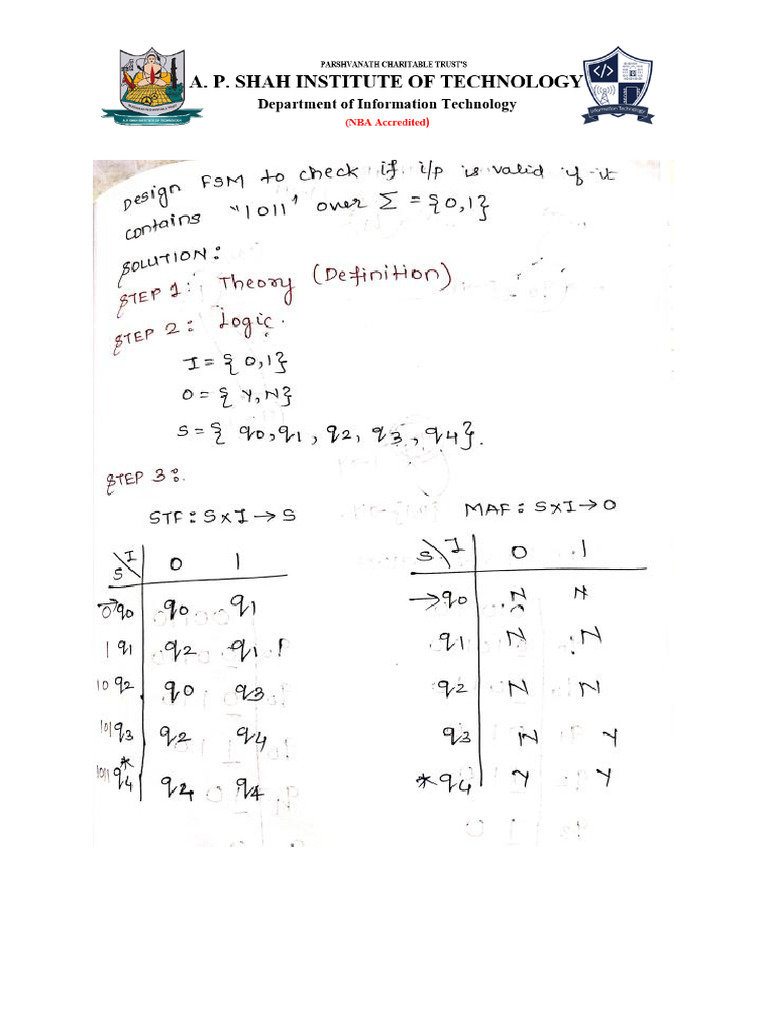 PARSHVANATH CHARITABLE TRUST'S
A. P. SHAH INSTITUTE OF TECHNOLOGY
Department of Information Technology
(NBA Accredited)
Design FSM to check if i/p is valid if it
contains "1011" over Σ = {0,1}
SOLUTION:
STEP 1: Theory (Definition)
STEP 2: Logic.
I = {0,1}
O = {Y,N}
S = { q0, q1, q2, q3, q4}.
STEP 3:
STF: S x I → S
S \ I 0 1
0 → q0 q0 q1
1 q1 q2 q1
10 q2 q0 q3
101 q3 q2 q4
1011 q4* q4 q4
MAF: S x I → O
S \ I 0 1
→ q0 N N
q1 N N
q2 N N
q3 N Y
* q4 Y Y